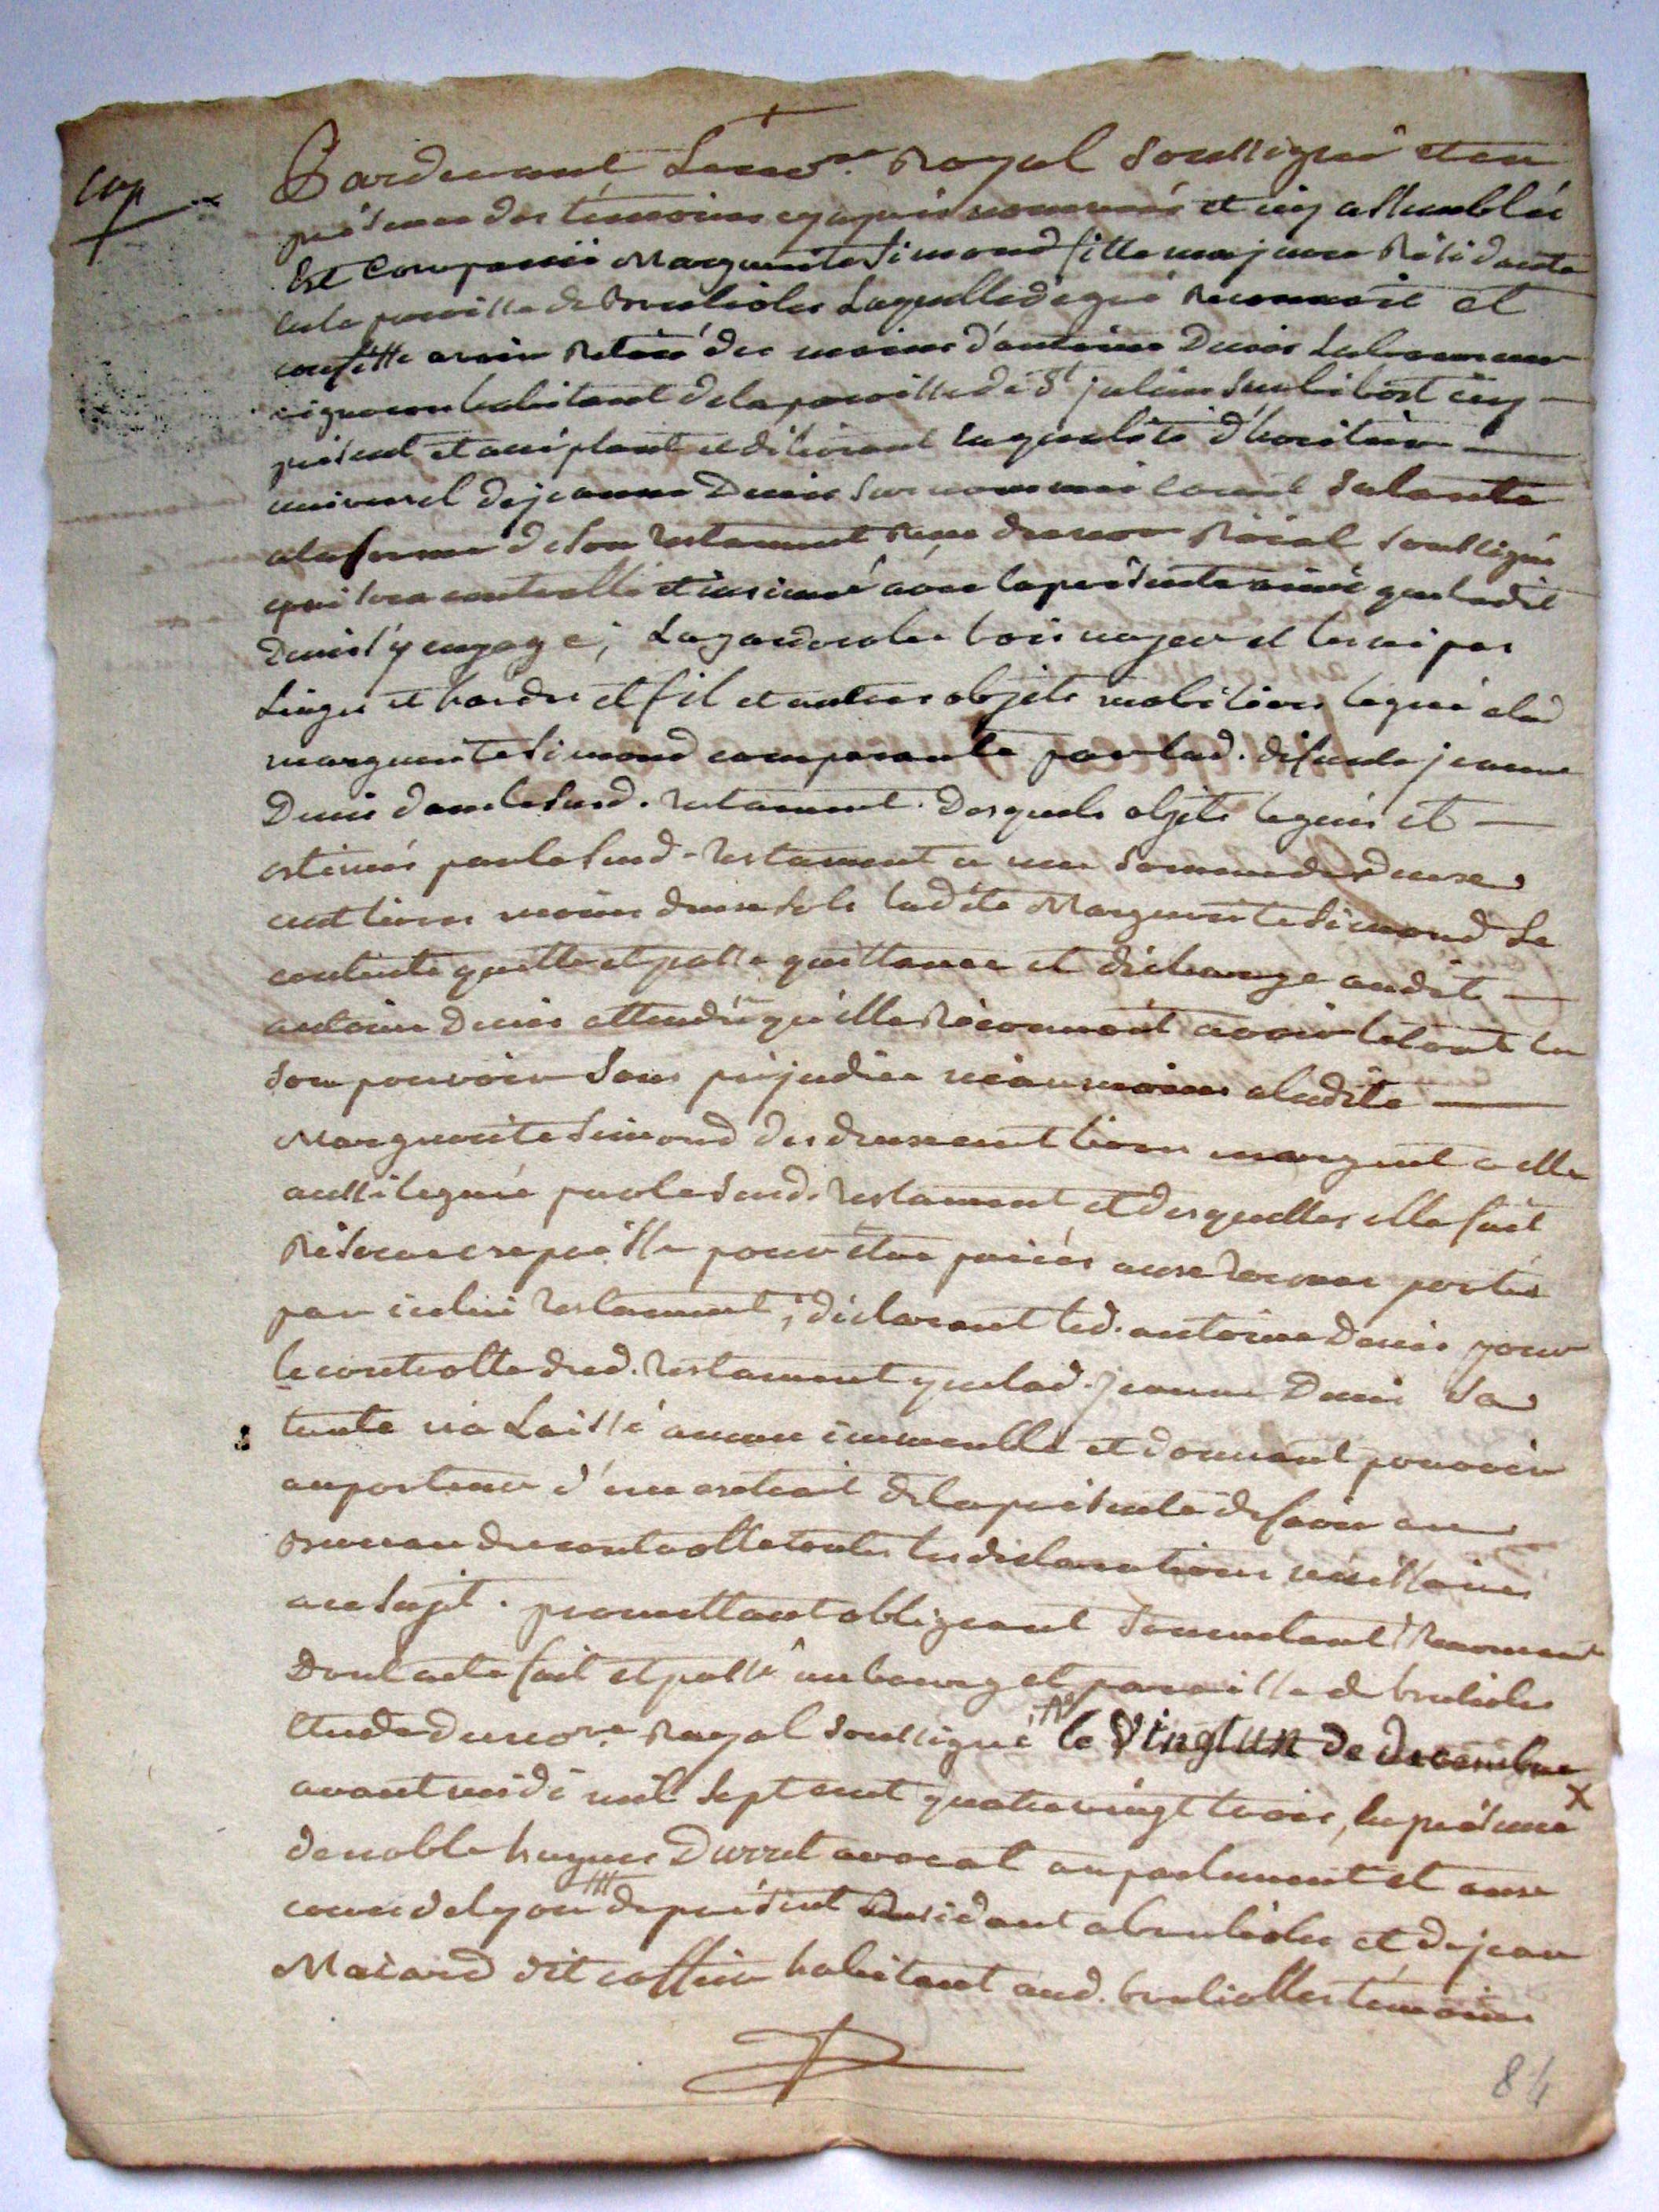 Cop
Pardevant Le no.re Royal soussigné et en
présence des témoins cy apres nommés et icy assemblés
Est Comparüe Marguerite Simond fille majeure Résidante
en la paroisse de Brulioles Laquelle de gré Reconnoit et
confesse avoir Retiré des mains d'antoine Denis Laboureur
vigneron habitant de la paroisse de St julien sur bibost icy
présent et acceptant et a la qualité d'heritier
universel de jeanne Denis sa tante
a la forme de son testament Reçu du no.re Roïal soussigné
qui sera controllé et insinué avec la présente ainsi que ledit
Denis s'y engage; La garderobe bois noyer et les nipes
Linges et hardes et fil et autres objets mobiliers legués a lad
marguerite Simond comparante par lad. défunte jeanne
Denis dans le susd. testament. Desquels objets legués et
estimés par le susd. testament a une somme de deux
cent livres moins deux sols ladite Marguerite Simond se
contente quitte et passe quittance et décharge audit
antoine Denis attendu qu'elle Réconnoit avoir le tout en
son pouvoir Sans préjudice néanmoins a ladite
Marguerite Simond des deux cent livres en argent a elle
aussi legués par le susd. testament et desquelles elle fait
Réserve expresse pour être paiées aux termes portés
par icelui testament; déclarant led. antoine Denis pour
le controlle dud. testament que lad. jeanne Denis sa
tante n'a Laissé aucun immeuble et donnant pouvoir
au porteur d'un extrait de la présente de faire au
Bureau du controlle toutes les declarations nécessaires
au sujet. promettant obligeant soumettant Renonçant
Dont acte fait et passé au bourg et paroisse de brulioles
Etude du no.re Royal soussigné le Vingt un de decembre
avant midi mil sept cent quatre vingt trois, en présence
de noble hugues Durret avocat au parlement et aux
cours de Lyon de présent Residant a brulioles et de jean
Macard dit habitant aud. bruliolles témoins
84